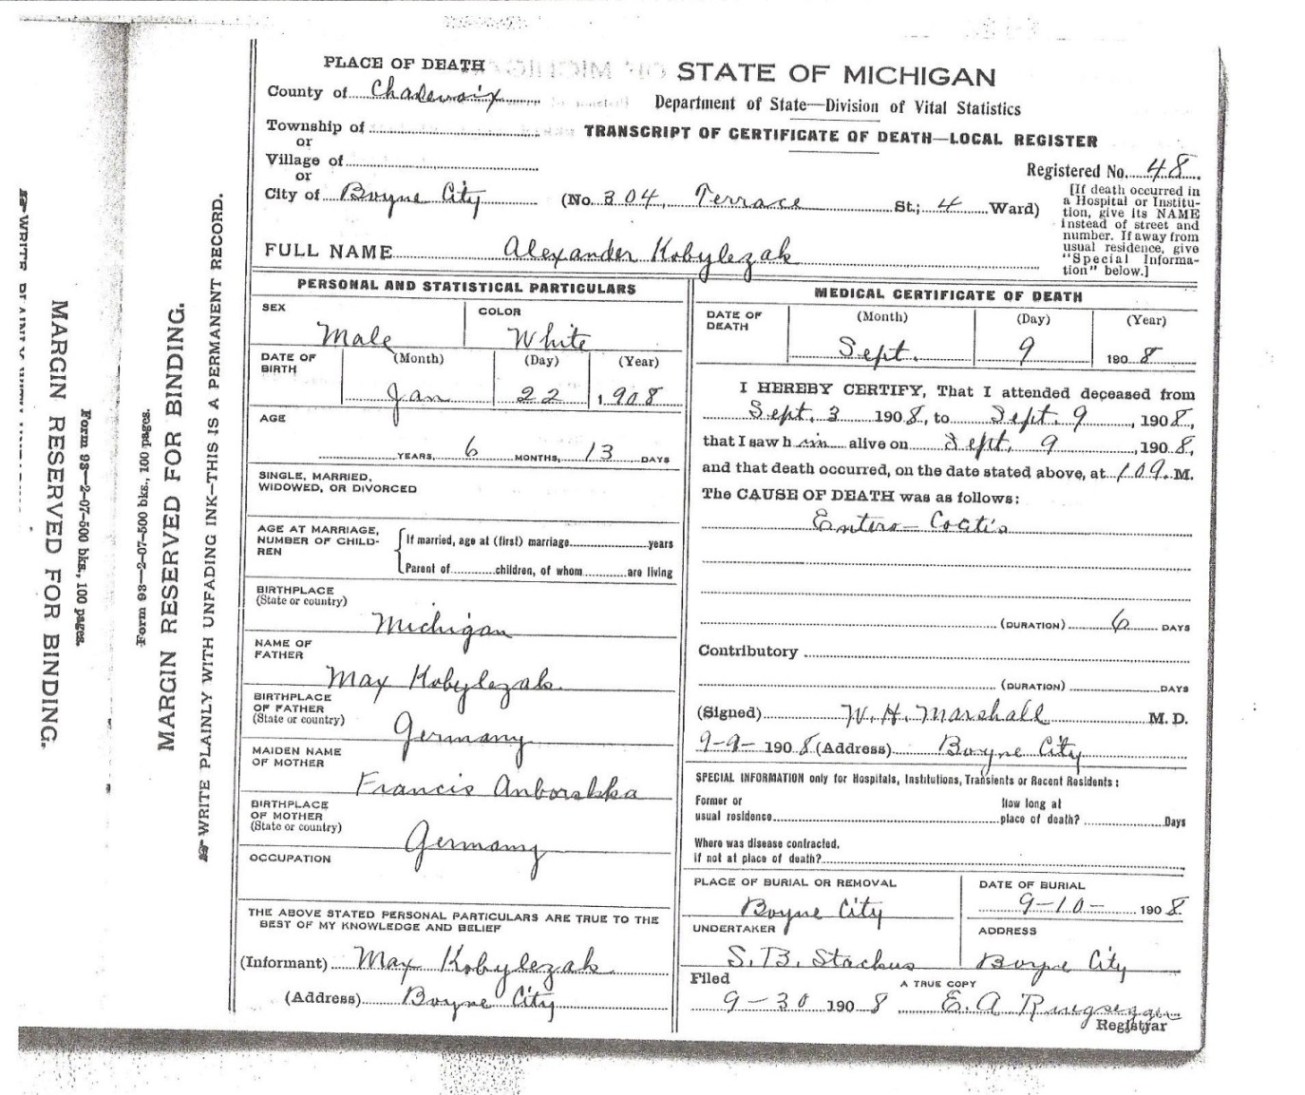 PLACE OF DEATH
STATE OF MICHIGAN
County of Charlevoix
Department of State—Division of Vital Statistics
Township of
TRANSCRIPT OF CERTIFICATE OF DEATH—LOCAL REGISTER
or
Village of
Registered No. 48
or
City of Boyne City (No. 304, Terrace St.; 4 Ward)
[If death occurred in
a Hospital or Institu-
tion, give its NAME
instead of street and
number. If away from
usual residence, give
"Special Informa-
tion" below.]
FULL NAME Alexander Kobylezak
PERSONAL AND STATISTICAL PARTICULARS
SEX
Male
COLOR
White
DATE OF
BIRTH
(Month) (Day) (Year)
Jan 22 1908
AGE
YEARS, 6 MONTHS, 13 DAYS
SINGLE, MARRIED,
WIDOWED, OR DIVORCED
AGE AT MARRIAGE,
NUMBER OF CHILD-
REN
If married, age at (first) marriage years
Parent of children, of whom are living
BIRTHPLACE
(State or country)
Michigan
NAME OF
FATHER
Max Kobylezak
BIRTHPLACE
OF FATHER
(State or country)
Germany
MAIDEN NAME
OF MOTHER
Francis
BIRTHPLACE
OF MOTHER
(State or country)
Germany
OCCUPATION
THE ABOVE STATED PERSONAL PARTICULARS ARE TRUE TO THE
BEST OF MY KNOWLEDGE AND BELIEF
(Informant) Max Kobylezak
(Address) Boyne City
MEDICAL CERTIFICATE OF DEATH
DATE OF
DEATH
(Month) (Day) (Year)
Sept. 9 1908
I HEREBY CERTIFY, That I attended deceased from
Sept. 3 1908, to Sept. 9, 1908,
that I saw him alive on Sept. 9, 1908,
and that death occurred, on the date stated above, at M.
The CAUSE OF DEATH was as follows:
Entero-
(DURATION) 6 DAYS
Contributory
(DURATION) DAYS
(Signed) W. H. Marshall M. D.
9-9- 1908 (Address) Boyne City
SPECIAL INFORMATION only for Hospitals, Institutions, Transients or Recent Residents:
Former or
usual residence
How long at
place of death? Days
Where was disease contracted,
if not at place of death?
PLACE OF BURIAL OR REMOVAL
Boyne City
DATE OF BURIAL
9-10- 1908
UNDERTAKER
S. B. Stackus
ADDRESS
Boyne City
Filed
9-30 1908
A TRUE COPY
E. A.
Registrar
WRITE PLAINLY WITH UNFADING INK—THIS IS A PERMANENT RECORD.
MARGIN RESERVED FOR BINDING.
Form 93—2-07-500 bks., 100 pages.
Form 93—2-07-500 bks., 100 pages.
MARGIN RESERVED FOR BINDING.